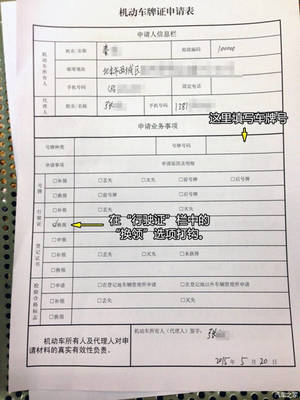 机动车牌证申请表
申请人信息栏
机动车所有人
姓名/名称
邮政编码
100000
邮寄地址
北京市西城区
手机号码
固定电话
代理人
姓名/名称
手机号码
138
申请业务事项
这里填写车牌号
号牌种类
号牌号码
申请事项
申请原因及明细
号牌
□补领
□丢失
□灭失
□前号牌
□后号牌
□换领
□前号牌
□后号牌
行驶证
□补领
□丢失
□灭失
换领
在“行驶证”栏中的
“换领”选项打钩。
登记证书
□申领
□补领
□丢失
□灭失
□未获得
□换领
检验合格标志
□申请
□在登记地车辆管理所申请
□在登记地以外车辆管理所申请
□补领
□丢失
□灭失
□换领
机动车所有人及代理人对申请材料的真实有效性负责。
机动车所有人（代理人）签字：
2015年 5月 20日
汽车之家